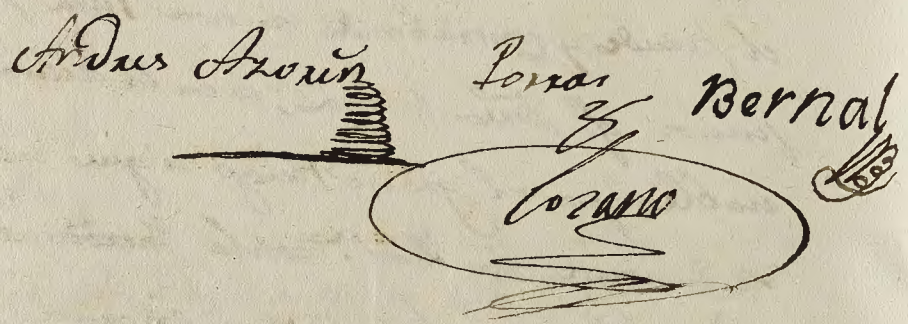 Andres Azorin Porras Bernal
Lozano